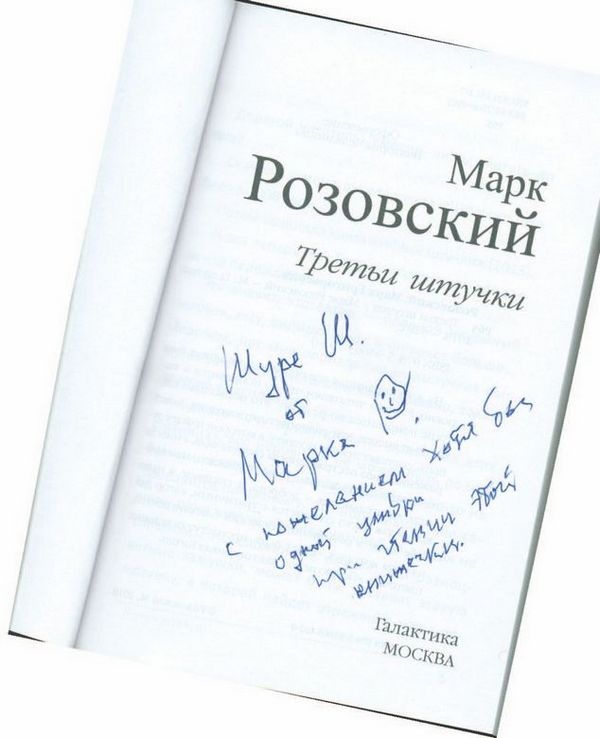 Марк
РОЗОВСКИЙ
Третьи штучки
Шуре Ш.
от
Марка Р.
с пожеланием хотя бы
одной улыбки
при чтении этой
книжечки.
Галактика
МОСКВА